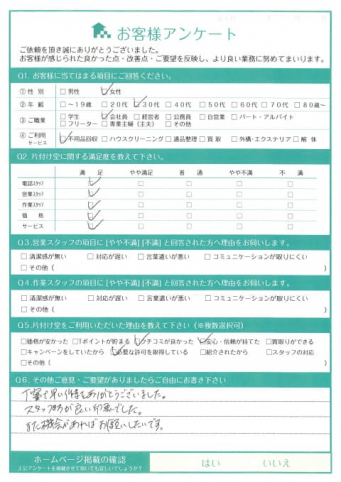 お客様アンケート
ご依頼を頂き誠にありがとうございました。
お客様が感じられた良かった点・改善点・ご要望を反映し、より良い業務に努めてまいります。
Q1. お客様に当てはまる項目にご回答ください。
①性 別 □男性 ☑女性
②年 齢 □～19歳 □20代 ☑30代 □40代 □50代 □60代 □70代 □80歳～
③ご職業 □学生 ☑会社員 □経営者 □公務員 □自営業 □パート・アルバイト
□フリーター □専業主婦（主夫） □その他
④ご利用サービス ☑不用品回収 □ハウスクリーニング □遺品整理 □買取 □外構・エクステリア □解体
Q2. 片付け堂に関する満足度を教えて下さい。
満足 やや満足 普通 やや不満 不満
電話スタッフ ☑ □ □ □ □
営業スタッフ ☑ □ □ □ □
作業スタッフ ☑ □ □ □ □
価格 ☑ □ □ □ □
サービス ☑ □ □ □ □
Q3. 営業スタッフの項目に [やや不満] [不満] と回答された方へ理由をお伺いします。
□清潔感が無い □対応が遅い □言葉遣いが悪い □コミュニケーションが取りにくい
□その他（
Q4. 作業スタッフの項目に [やや不満] [不満] と回答された方へ理由をお伺いします。
□清潔感が無い □対応が遅い □言葉遣いが悪い □コミュニケーションが取りにくい
□その他（
Q5. 片付け堂をご利用いただいた理由を教えて下さい（※複数選択可）
□価格が安かった □Tポイントが貯まる ☑クチコミが良かった ☑安心・信頼が持てた □買取りができる
□キャンペーンをしていたから ☑必要な許可を取得している □紹介されたから □スタッフの対応
□その他（
Q6. その他ご意見・ご要望がありましたらご自由にお書き下さい
丁寧で早い作業をありがとうございました。
スタッフ
が良い印象でした。
また機会があればお願いしたいです。
ホームページ掲載の確認
上記アンケートを掲載させて頂いても宜しいでしょうか？
はい いいえ